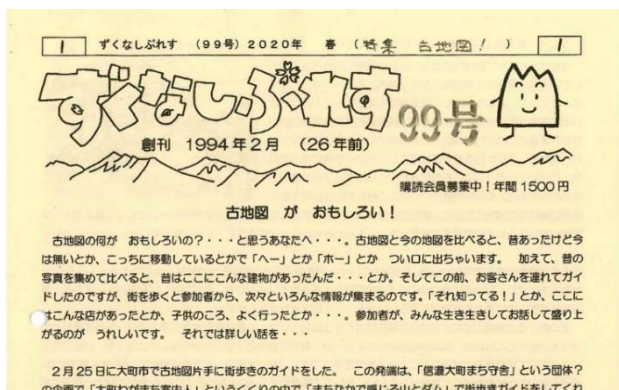 1 ずくなしぷれす （99号）2020年 春 （特集 古地図！ ） 1
ずくなしぷれす 99号
創刊 1994年2月 （26年前）
購読会員募集中！年間1500円
古地図 が おもしろい！
古地図の何が おもしろいの？・・・と思うあなたへ・・・。古地図と今の地図を比べると、昔あったけど今
は無いとか、こっちに移動しているとかで「へー」とか「ホー」とか つい口に出ちゃいます。 加えて、昔の
写真を集めて比べると、昔はここにこんな建物があったんだ・・・とか。そしてこの前、お客さんを連れてガイ
ドしたのですが、街を歩くと参加者から、次々といろんな情報が集まるのです。「それ知ってる！」とか、ここに
はこんな店があったとか、子供のころ、よく行ったとか・・・。参加者が、みんな生き生きしてお話して盛り上
がるのが うれしいです。 それでは詳しい話を・・・
2月25日に大町市で古地図片手に街歩きのガイドをした。 この発端は、「信濃大町まち守舎」という団体？
の企画で「大町わがまち案内人」というくくりの中で「まちなかで感じる山とダム」で街歩きガイドをしてくれ